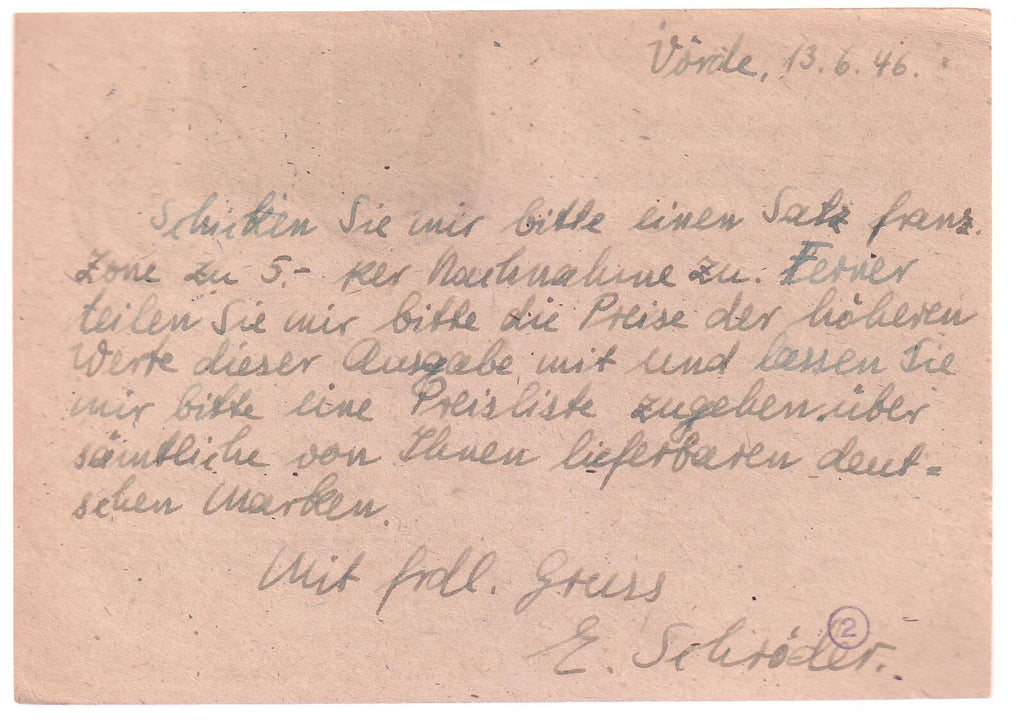 Vörde, 13.6.46.
Schicken Sie mir bitte einen Satz franz.
Zone zu 5.- per Nachnahme zu. Ferner
teilen Sie mir bitte die Preise der höheren
Werte dieser Ausgabe mit und lassen Sie
mir bitte eine Preisliste zugehen über
sämtliche von Ihnen lieferbaren deut=
schen Marken.
Mit frdl. Gruss
E. Schröder.
2